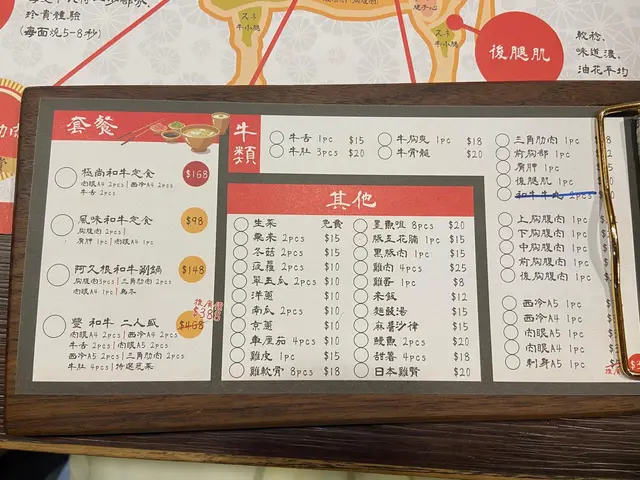 珍貴體驗
(每面燒5-8秒)
スネ
牛小腿
スネ
牛小腿
後腿肌
軟稔,
味道濃,
油花平均
套餐
極尚和牛定食
$168
肉眼A4 2pcs|西冷A4 2pcs
牛舌 2pcs
風味和牛定食
$98
胸腹肉 2pcs|
肩胛 1pc|肉眼A4 1pc
阿久根和牛涮鍋
$148
胸腹肉3pcs|三角肋肉 2pcs
肉眼A4 1pc|烏冬
和牛 二人盛
$468
$38
肉眼A4 2pcs|西冷A4 2pcs
牛舌 2pcs|肉眼A5 2pcs
西冷A5 2pcs|三角肋肉 2pcs
牛肚 4pcs|特選蔬菜
牛類
牛舌 1pc $15
牛肚 3pcs $20
牛胸爽 1pc $18
牛骨髓 $20
其他
生菜 免費
粟米 2pcs $15
冬菇 2pcs $15
菠蘿 2pcs $10
翠玉瓜 2pcs $10
洋蔥 $10
南瓜 2pcs $10
京蔥 $10
車厘茄 4pcs $10
雞皮 1pc $15
雞軟骨 8pcs $18
墨魚咀 8pcs $20
豚五花腩 1pc $15
黑豚肉 1pc $15
雞肉 4pcs $25
雞番 1pc $8
米飯 $12
麵豉湯 $15
麻醬沙律 $15
鰻魚 2pcs $20
甜薯 4pcs $18
日本雞腎 $20
三角肋肉 1pc
前胸部 1pc
肩胛 1pc
後腿肌 1pc
和牛牛肉 2pcs
上胸腹肉 1pc
下胸腹肉 1pc
中胸腹肉 1pc
前胸腹肉 1pc
後胸腹肉 1pc
西冷A5 1pc
西冷A4 1pc
肉眼A5 1pc
肉眼A4 1pc
刺身A5 1pc